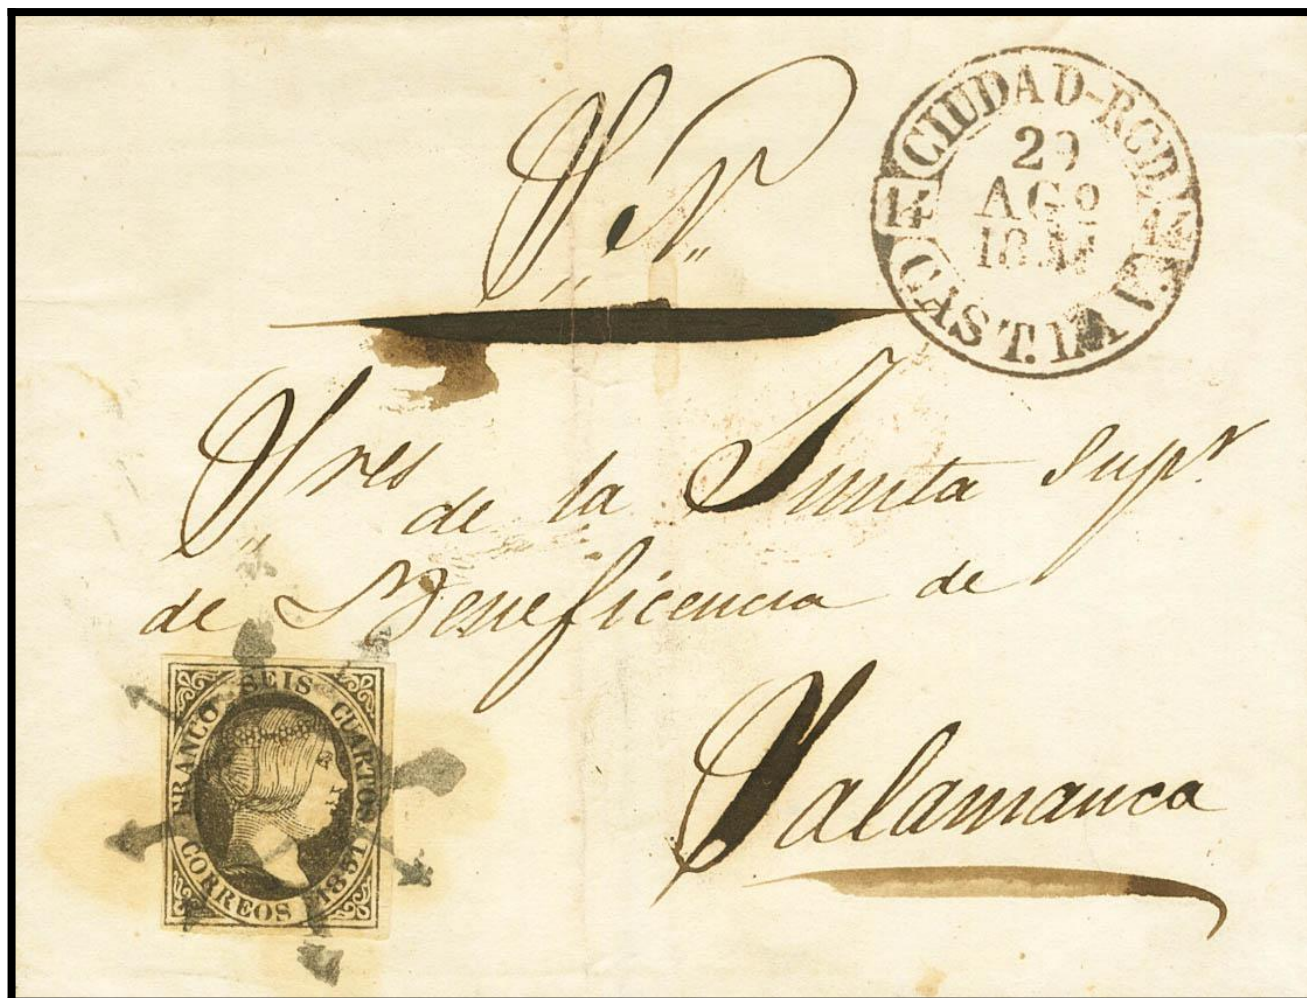 S. N.
CIUDAD-RODº
29
AGO
14
14
CAST. LA V.
Sres de la Junta Supr
de Beneficencia de
Salamanca
FRANCO SEIS CUARTOS
CORREOS 1851